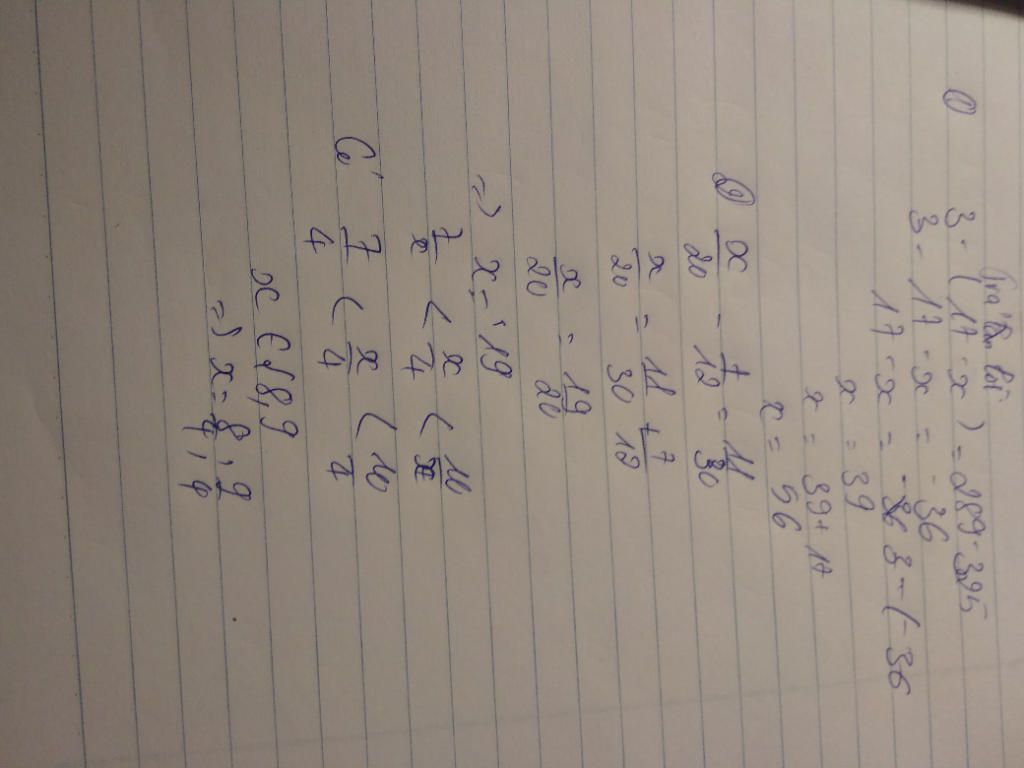 ① 3 - (17 - x) = 289 - 395
3 - 17 - x = -36
17 - x = 3 - (-36
x = 39
x = 39 + 17
x = 56
② x/20 - 7/12 = 11/30
x/20 = 11/30 + 7/12
x/20 = 19/20
=) x = 19
7/x < x/4 < 10/x
C, 7/4 < x/4 < 10/4
x ∈ { 8, 9
=) x = 8/4, 9/4